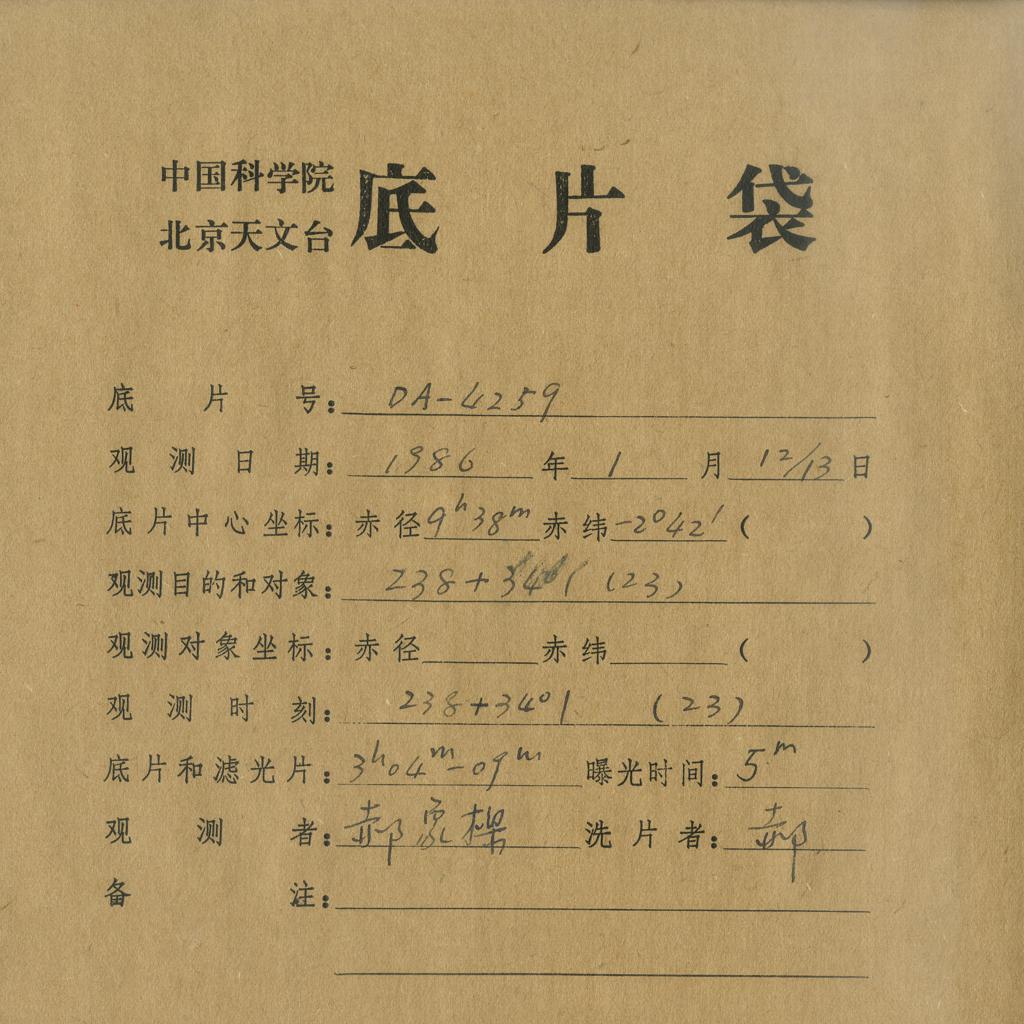 中国科学院
北京天文台
底片袋
底片号: DA-4259
观测日期: 1986 年 1 月 12/13 日
底片中心坐标: 赤径 9h38m 赤纬 -2°42′ ( )
观测目的和对象: 238+3401 (23)
观测对象坐标: 赤径 赤纬 ( )
观测时刻: 238+3401 (23)
底片和滤光片: 3h04m-09m 曝光时间: 5m
观测者: 郝象樑 洗片者: 郝
备注: